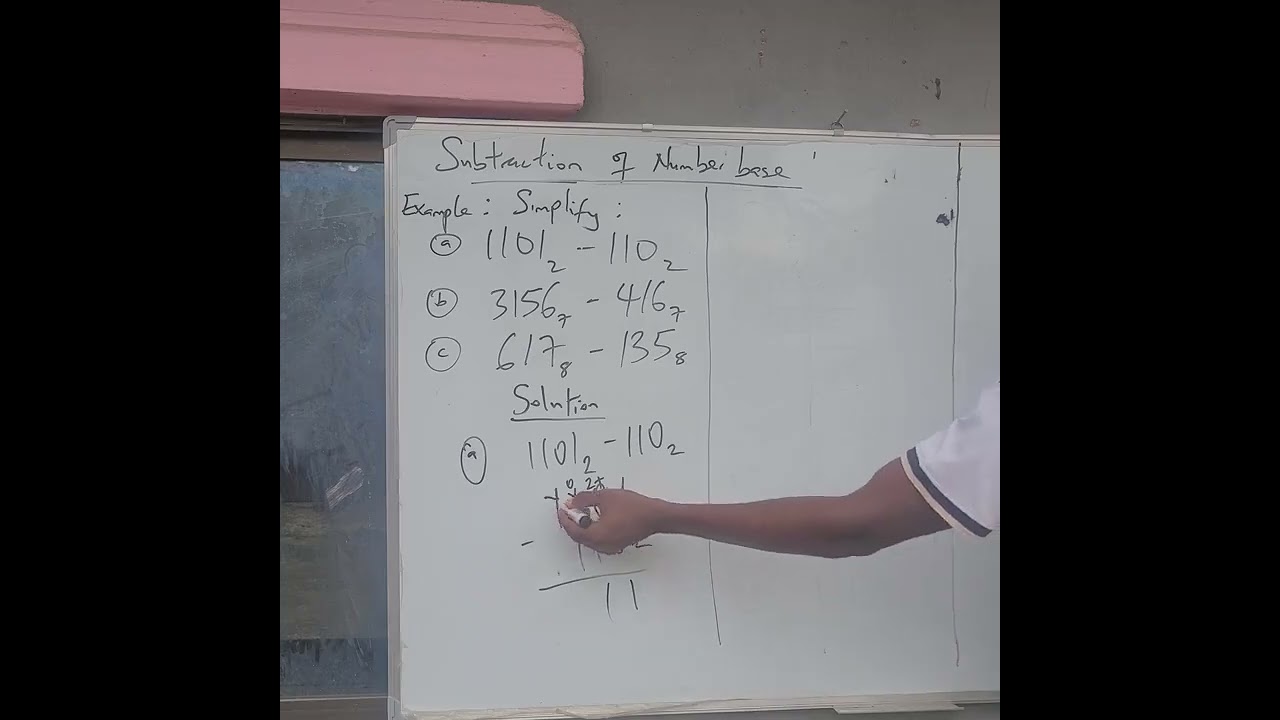 Subtraction of Number base
Example: Simplify:
(a) 1101₂ - 110₂
(b) 3156₇ - 416₇
(c) 617₈ - 135₈
Solution
(a) 1101₂ - 110₂
0 2+
1
- 1 1 2
1 1